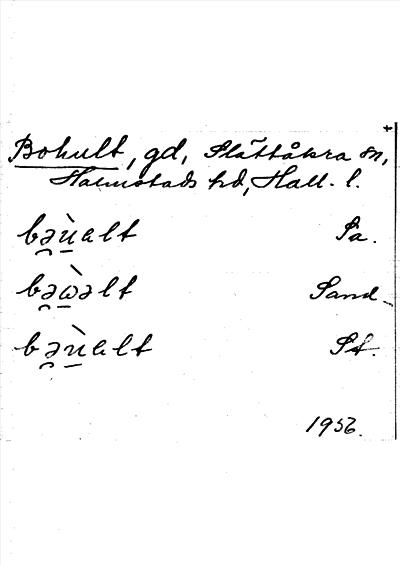 Bohult, gd, Slättåkra sn,
Halmstads hd, Hall. l.
bə̯ù̱ɐlt Sa.
bə̯ὼ̱əlt Sand.
bə̯ù̱ɐlt St.
1956.